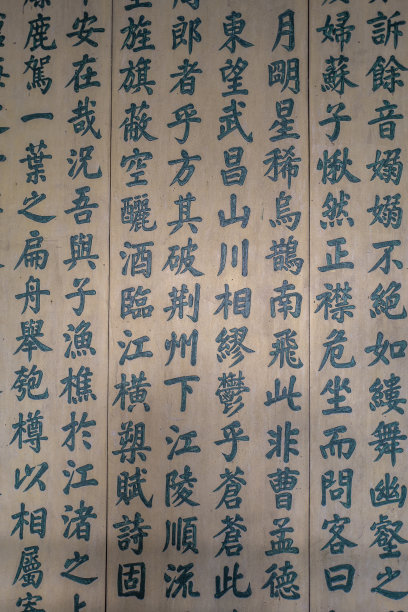 訴餘音嫋嫋不絕如縷舞幽壑之
婦蘇子愀然正襟危坐而問客曰
月明星稀烏鵲南飛此非曹孟德
東望武昌山川相繆鬱乎蒼蒼此
郎者乎方其破荊州下江陵順流
旌旗蔽空釃酒臨江橫槊賦詩固
安在哉況吾與子漁樵於江渚之
鹿駕一葉之扁舟舉匏樽以相屬